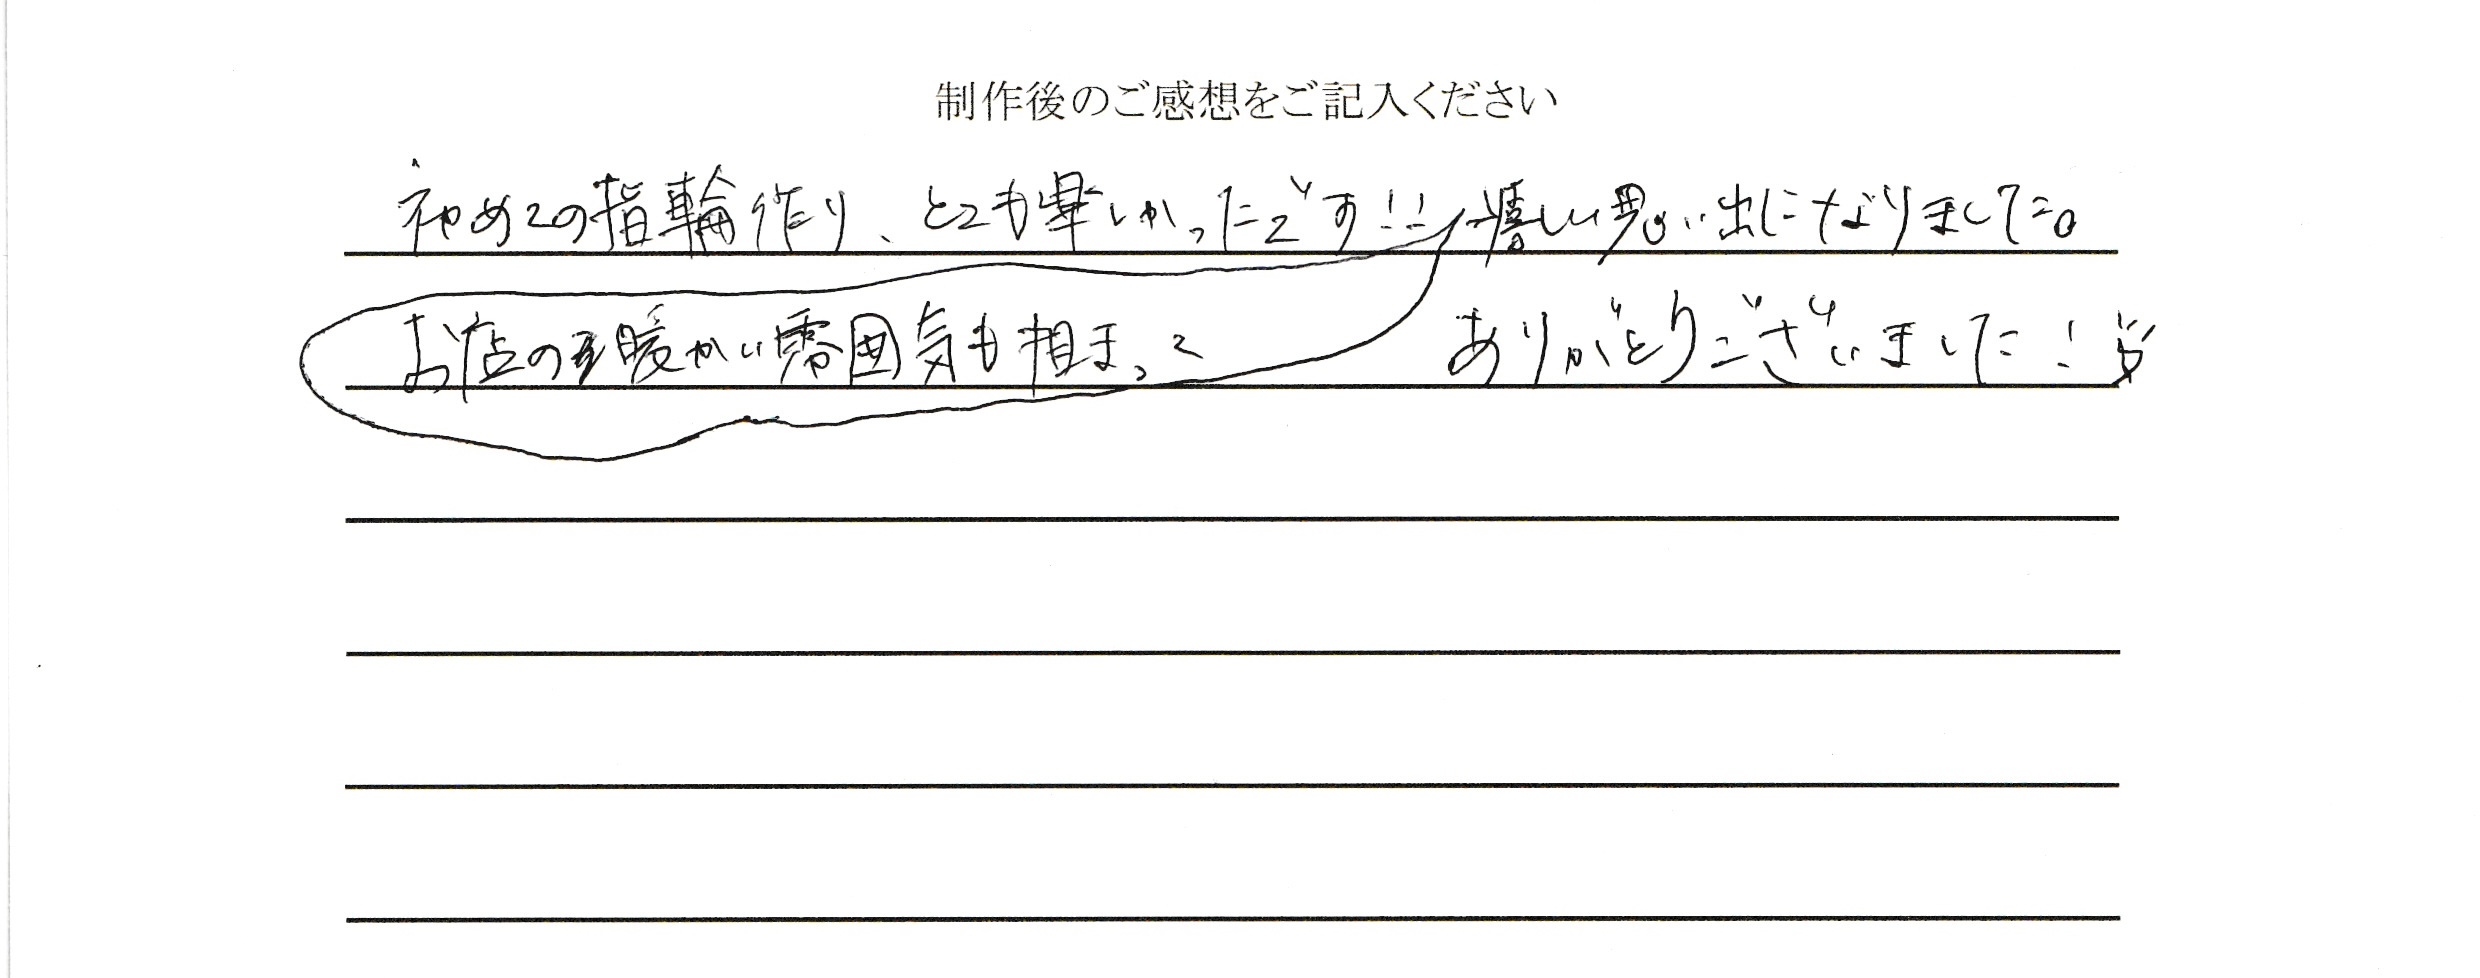 制作後のご感想をご記入ください
初めての指輪作り、とても楽しかったです!! 嬉しい思い出になりました。
お店の暖かい雰囲気も相まって ありがとうございました!